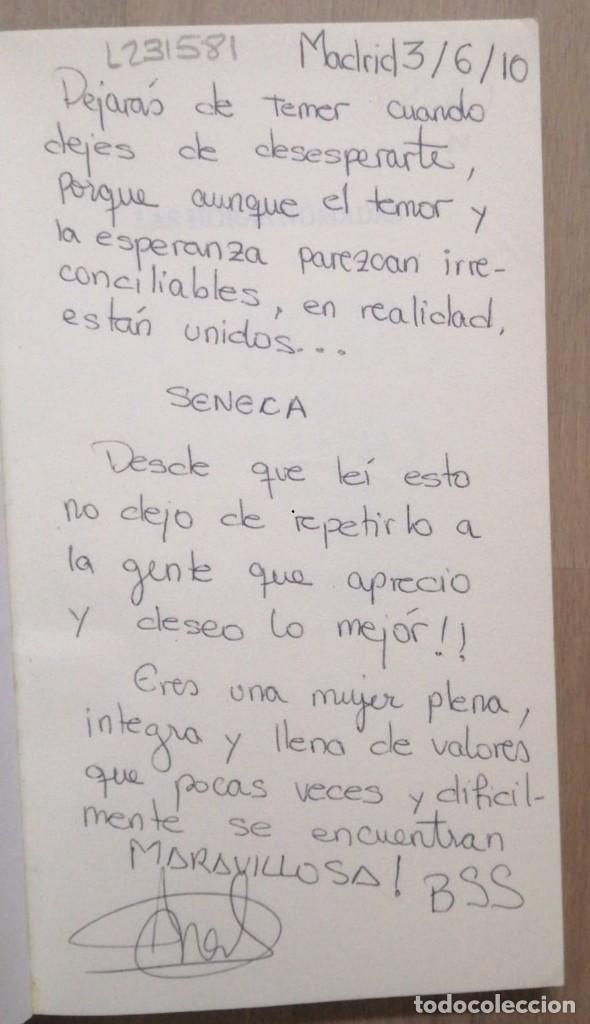 L231581 Madrid 3/6/10
Dejarás de temer cuando
dejes de desesperarte,
porque aunque el temor y
la esperanza parezcan irre-
conciliables, en realidad,
están unidos...
SENECA
Desde que leí esto
no dejo de repetirlo a
la gente que aprecio
y deseo lo mejor!!
Eres una mujer plena,
integra y llena de valores
que pocas veces y dificil-
mente se encuentran
MARAVILLOSA! BSS
todocoleccion